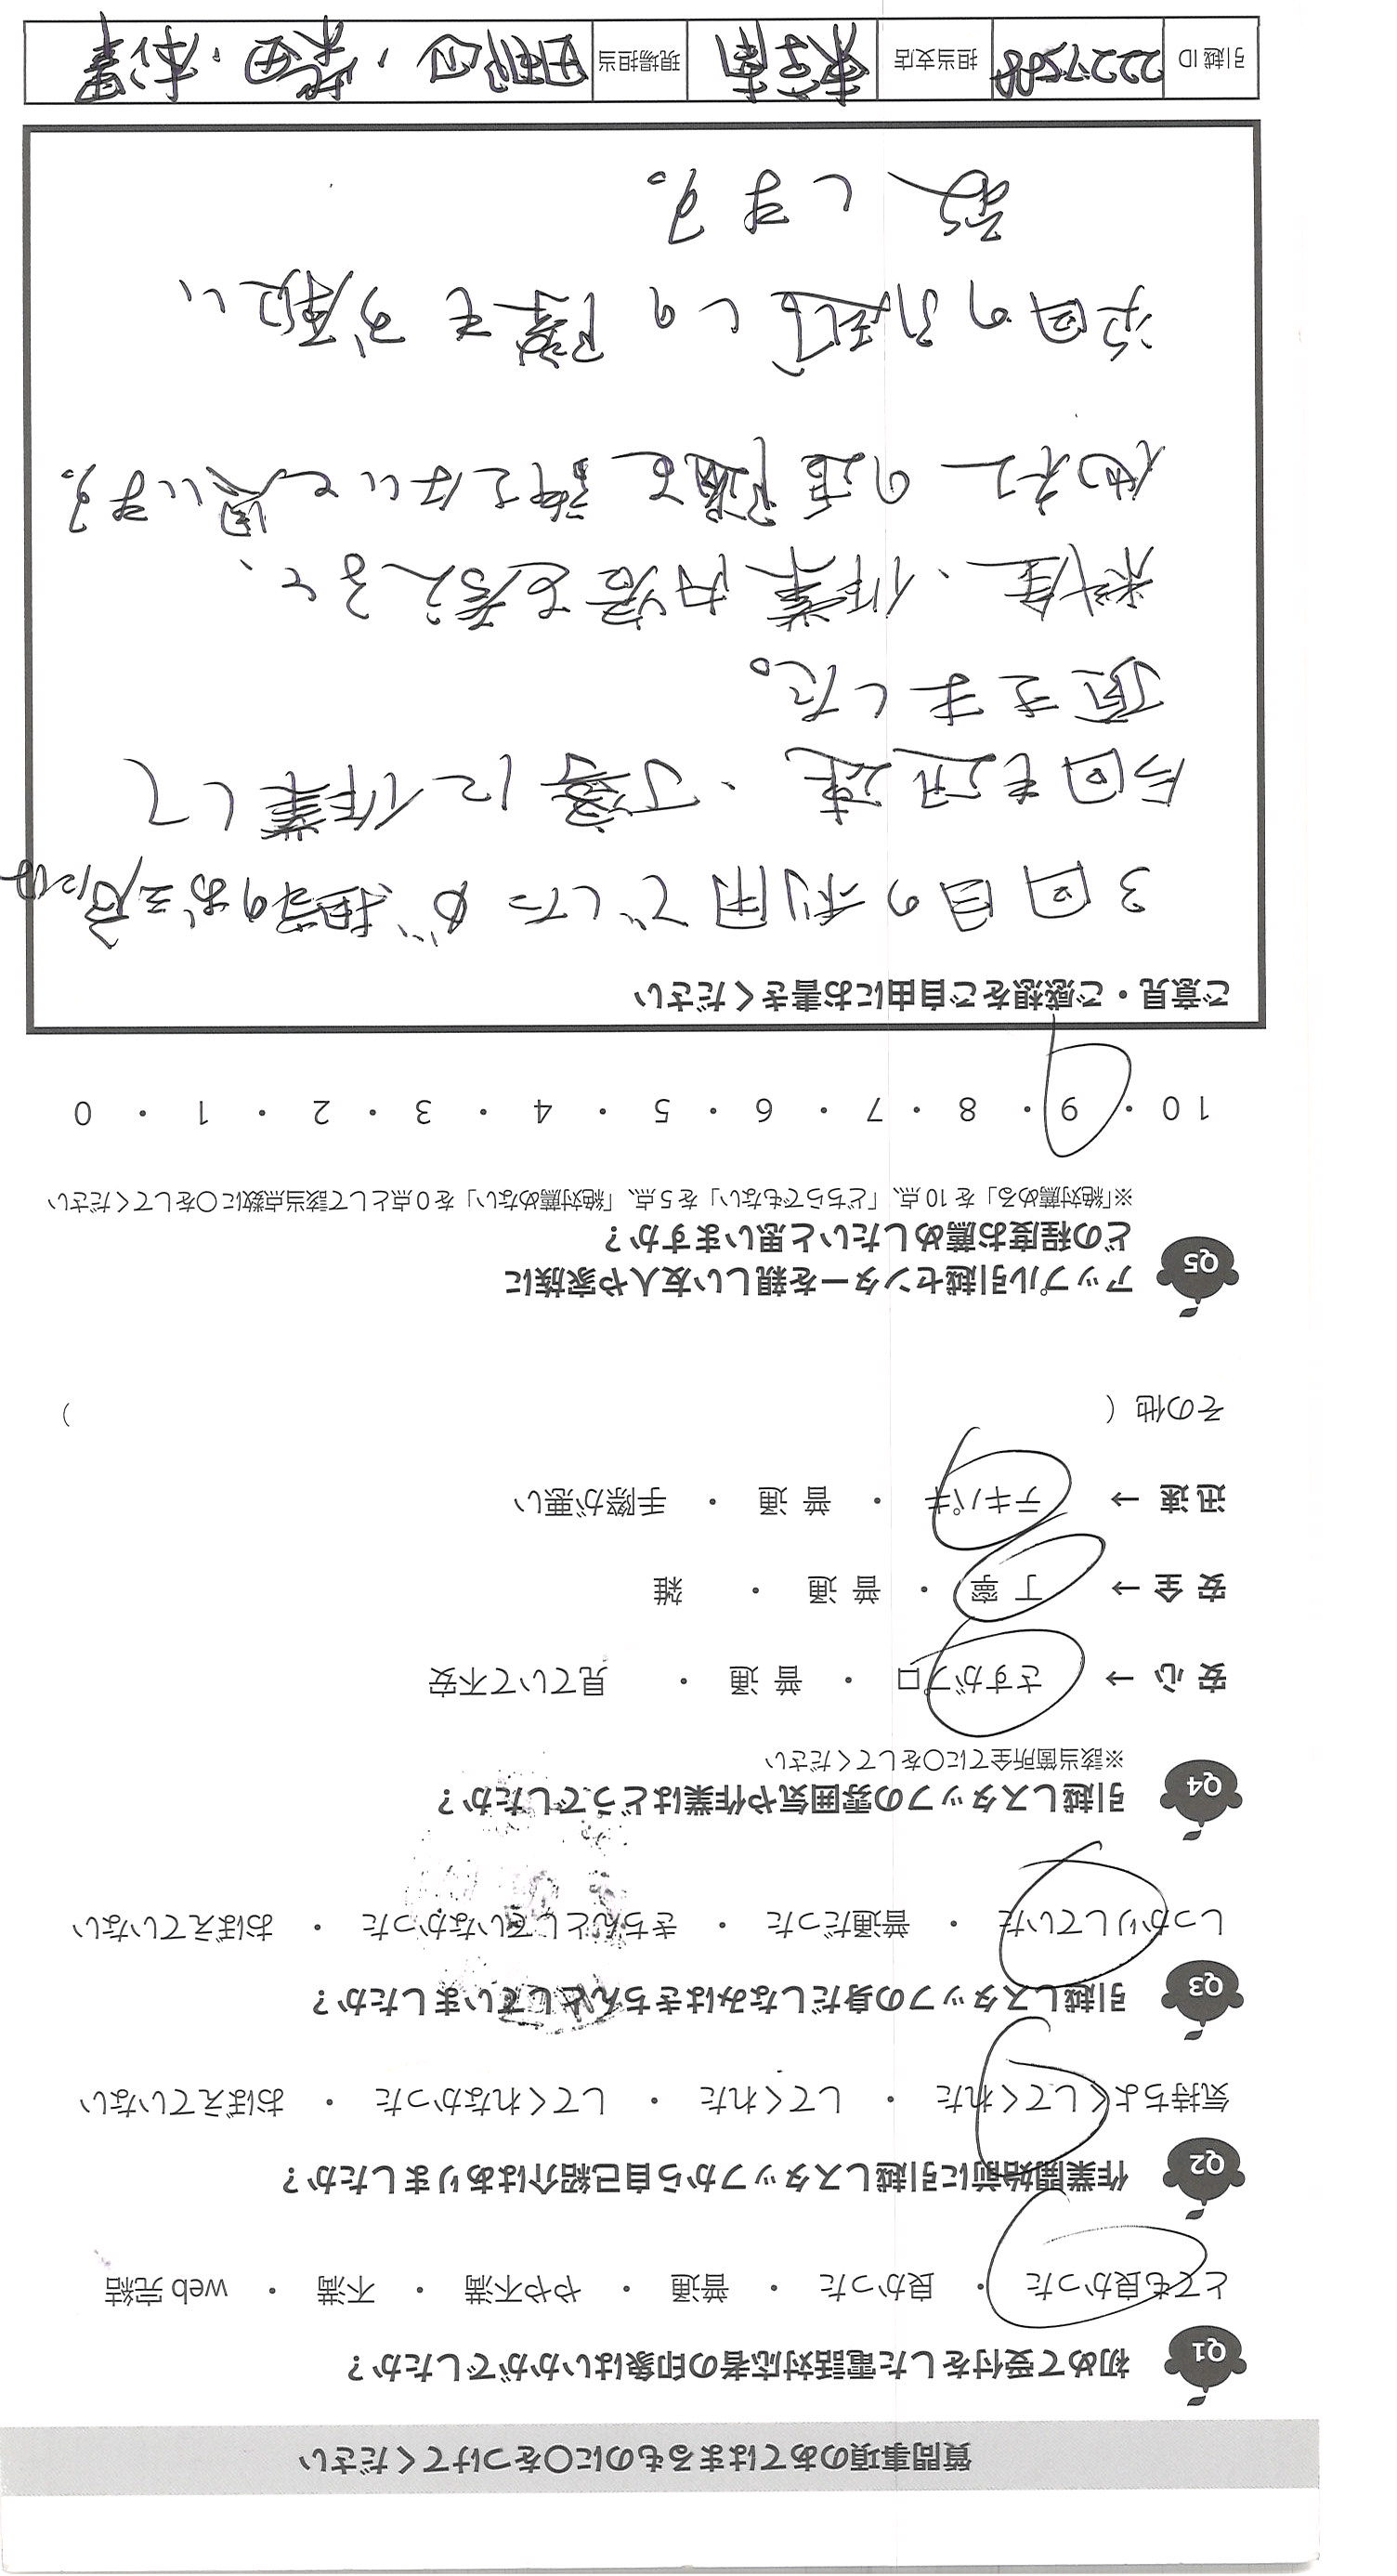 質問事項のあてはまるものに○をつけてください
Q1 初めて受付をした電話対応者の印象はいかがでしたか？
とても良かった ・ 良かった ・ 普通 ・ やや不満 ・ 不満 ・ web 完結
Q2 作業開始前に引越しスタッフから自己紹介はありましたか？
気持ちよくしてくれた ・ してくれた ・ してくれなかった ・ おぼえていない
Q3 引越しスタッフの身だしなみはきちんとしていましたか？
しっかりしていた ・ 普通だった ・ きちんとしていなかった ・ おぼえていない
Q4 引越しスタッフの雰囲気や作業はどうでしたか？
※該当箇所全てに○をしてください
安 心 → さすがプロ ・ 普 通 ・ 見ていて不安
安 全 → 丁 寧 ・ 普 通 ・ 雑
迅 速 → テキパキ ・ 普 通 ・ 手際が悪い
その他（ ）
Q5 アップル引越センターを親しい友人や家族に
どの程度お薦めしたいと思いますか？
※「絶対薦める」を 10 点、「どちらでもない」を 5 点、「絶対薦めない」を 0 点として該当点数に○をしてください
10 ・ 9 ・ 8 ・ 7 ・ 6 ・ 5 ・ 4 ・ 3 ・ 2 ・ 1 ・ 0
ご意見・ご感想をご自由にお書きください
3回目の利用でしたが担当のお三方には
今回も迅速、丁寧に作業して
頂きました。
料金、作業内容を考えると、
他社の追随を許さないと思います。
次回の引越しの際もお願い
致します。
引越 ID 担当支店 現場担当